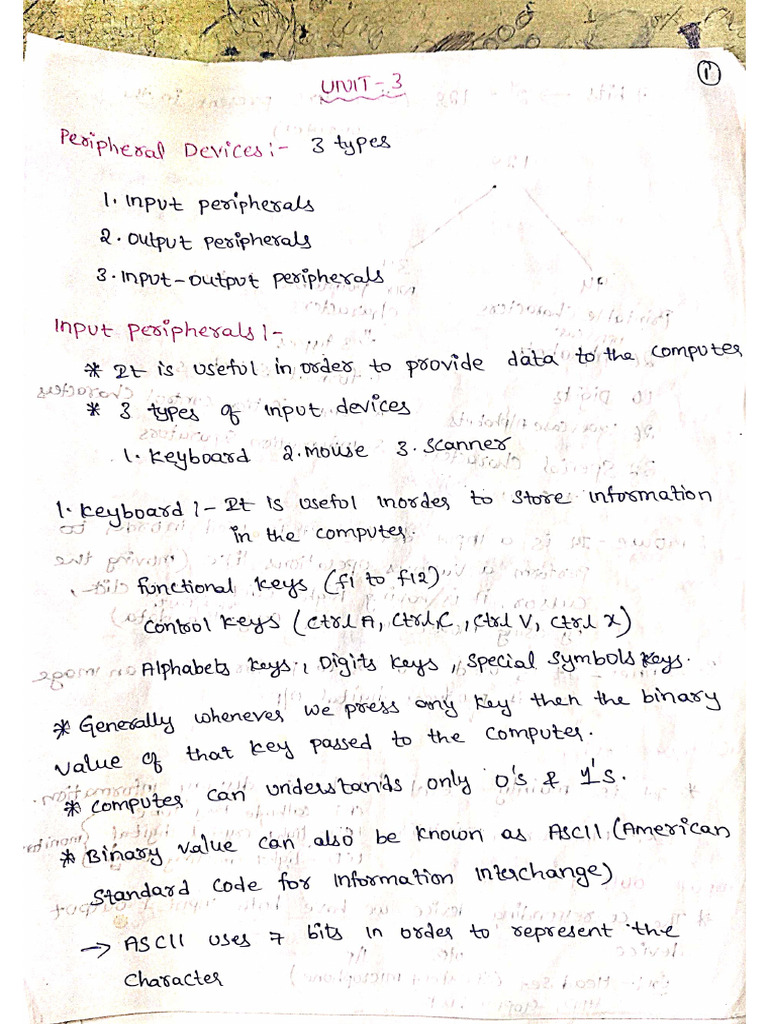 UNIT-3
1
Peripheral Devices:- 3 types
1. Input peripherals
2. output peripherals
3. Input-output peripherals
Input peripherals:-
* It is useful in order to provide data to the computer
* 3 types of input devices
1. Keyboard 2. mouse 3. scanner
1. Keyboard :- It is useful inorder to store information
in the computer.
functional keys (f1 to f12)
control keys (ctrl A, ctrl C, ctrl V, ctrl x)
Alphabets keys, Digits keys, special symbols keys.
* Generally whenever we press any key then the binary
value of that key passed to the computer.
* computer can understands only 0's & 1's.
* Binary value can also be known as ASCII (American
Standard code for Information Interchange)
→ ASCII uses 7 bits in order to represent the
character